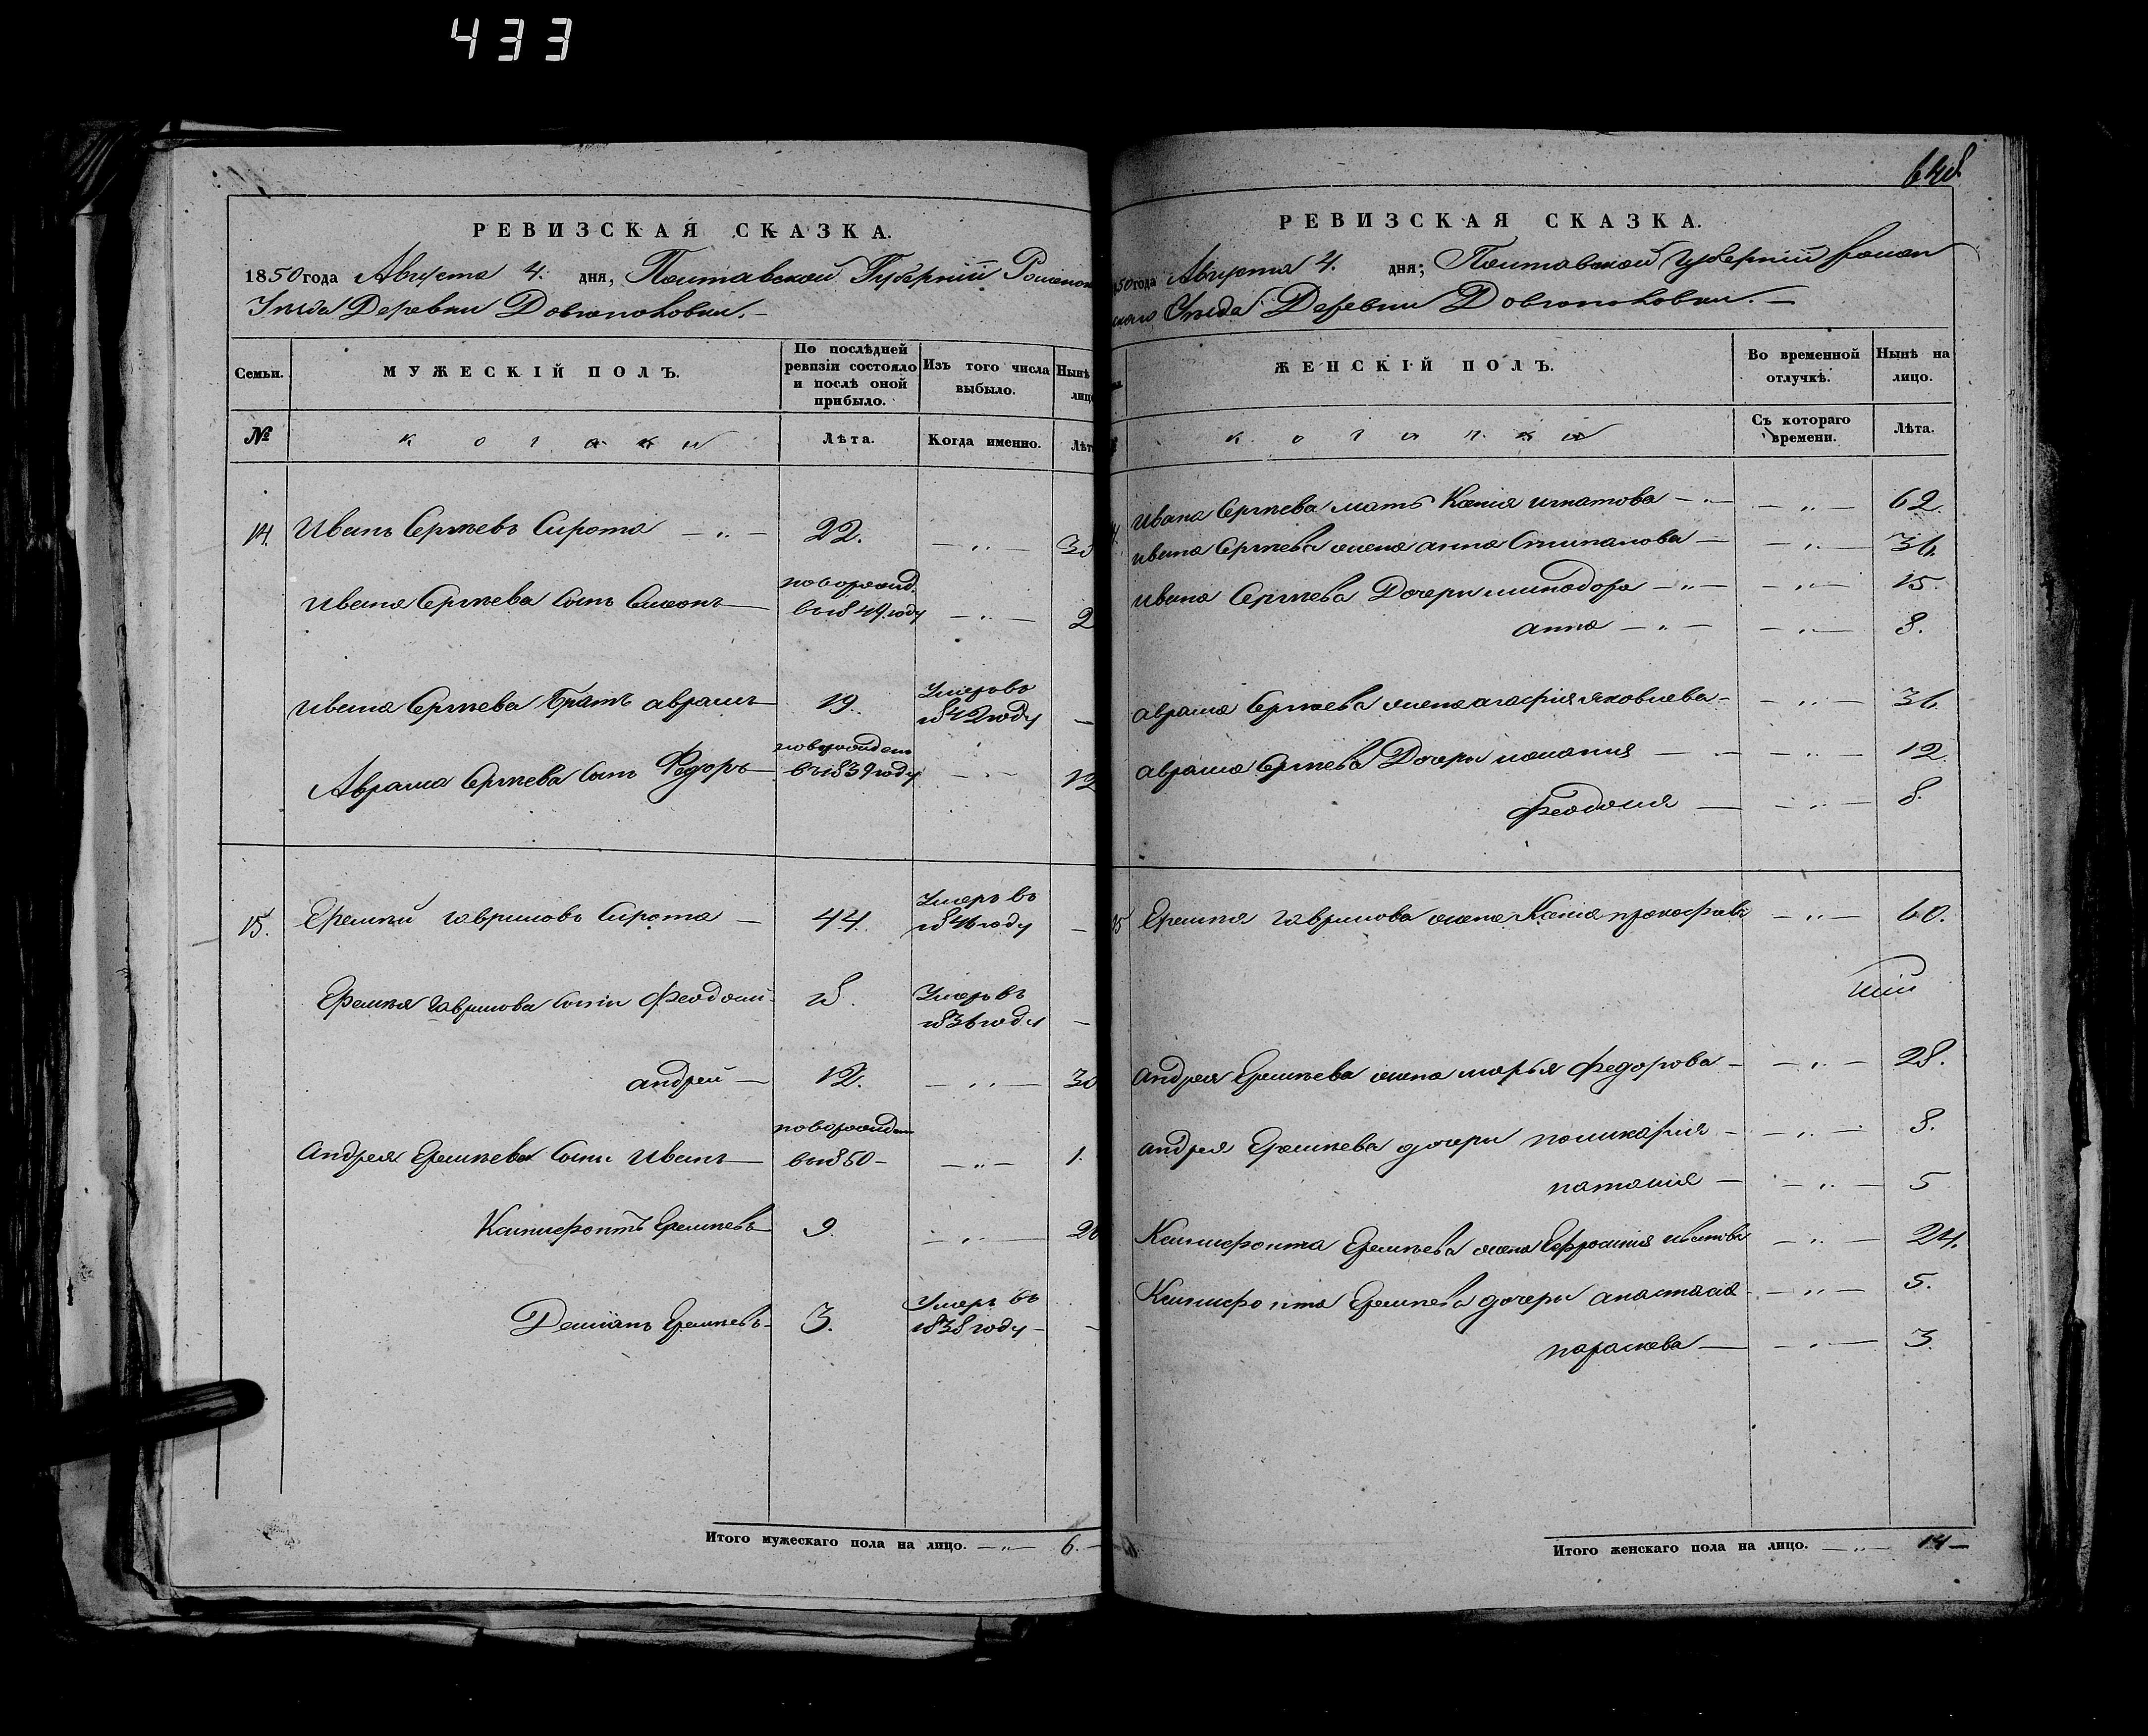 433
РЕВИЗСКАЯ СКАЗКА.
1850 года Августа 4. дня, Полтавской Губернiи Роменск
Уѣзда Деревни Довгополовки.
Семьи.
МУЖЕСКIЙ ПОЛЪ.
По послѣдней ревизiи состояло и послѣ оной прибыло.
Изъ того числа выбыло.
Нынѣ
лицо
№
козаки
Лѣта.
Когда именно.
Лѣта
14. Иванъ Сергѣевъ Сирота — „ — 22. — „ — 30
Ивана Сергѣева Сынъ Симонъ — новорожд. въ 1849 году — „ — 2
Ивана Сергѣева Братъ аврамъ — 19. Умеръ въ 1842 году —
Аврама Сергѣева Сынъ Федоръ — новорожден въ 1839 году — „ — 12
15. Еремѣй гавриловъ Сирота — 44. Умеръ въ 1846 году —
Еремѣя гаврилова Сыны Феодосiй 18. Умеръ въ 1836 году —
андрей — 12. — „ — 30
Андрея Еремѣева Сынъ Иванъ — новорожден въ 1850 — — „ — 1.
Ксенофонтъ Еремѣевъ 9. — „ —
Демiанъ Еремѣевъ 3. Умеръ въ 1838 году — —
Итого мужескаго пола на лицо. — „ — 6. —
648
РЕВИЗСКАЯ СКАЗКА.
50 года Августа 4. дня; Полтавской губернiи Ромен
скаго Уѣзда Деревни Довгополовки. —
ЖЕНСКIЙ ПОЛЪ.
Во временной отлучкѣ.
Нынѣ на лицо.
Съ котораго времени.
Лѣта.
Ивана Сергѣева мать Ксенiя игнатова — „ — — „ — 62.
ивана Сергѣева жена анна Степанова — — „ — 36.
Ивана Сергѣева Дочери минодора — „ — — „ — 15.
анна — „ — — „ — 8.
аврама Сергѣева жена агафiя яковлева — — „ — 36.
аврама Сергѣева Дочери меланiя — „ — — „ — 12.
Феодосiя — — „ — 8.
15 Еремѣя гаврилова жена Ксенiя — „ — 60.
андрея Еремѣева жена марья федорова — — „ — 28.
андрея Еремѣева дочери поликарiя — — „ — 8.
наталiя — — „ — 5
Ксенофонта Еремѣева жена Евфросинiя иванова — „ — 24.
Ксенофонта Еремѣева дочери анастасiя — „ — 5.
параскева — — „ — 3.
Итого женскаго пола на лицо. — „ — 14 —